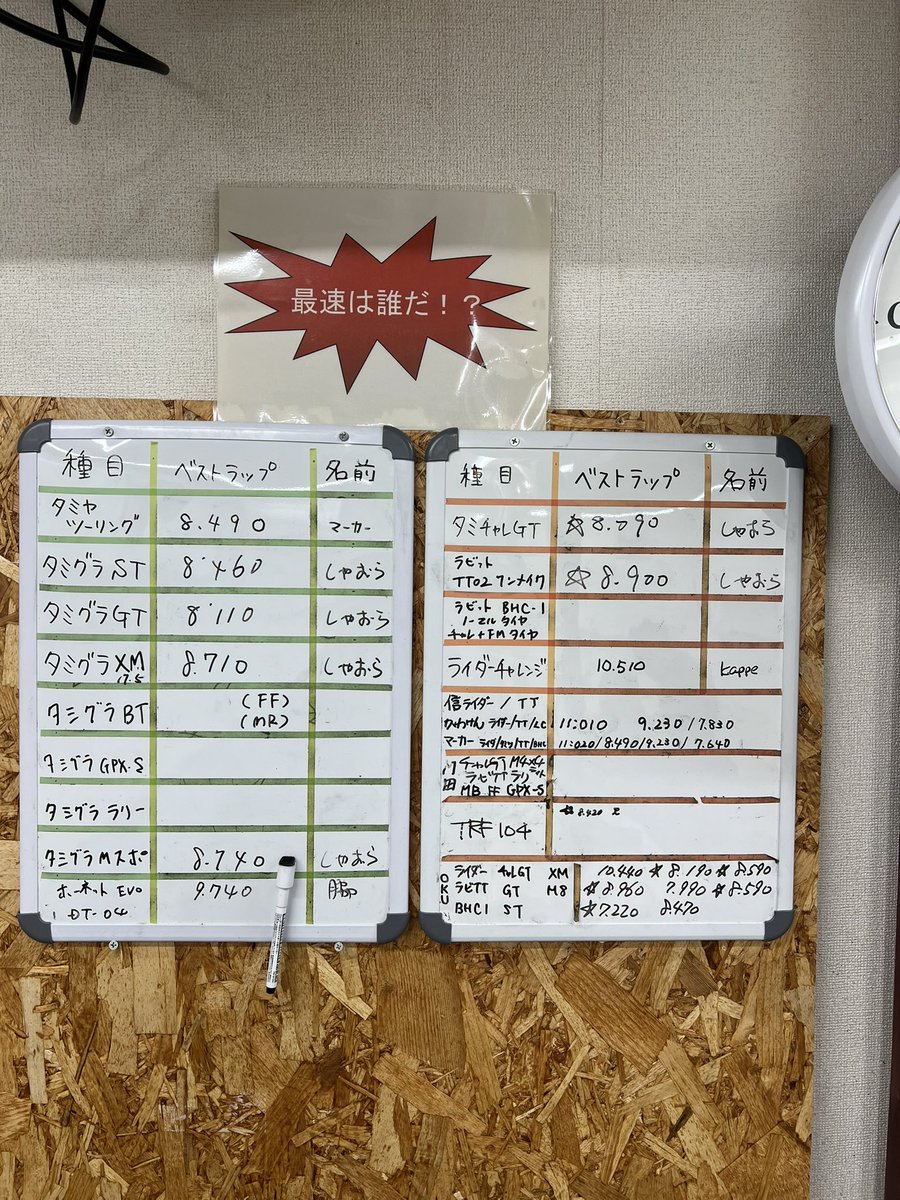 最速は誰だ！？
種目 ベストラップ 名前
タミヤ
ツーリング 8.490 マーカー
タミグラST 8'460 しゃおら
タミグラGT 8'110 しゃおら
タミグラXM 8.710 しゃおら
17.5
タミグラBT (FF)
(MR)
タミグラGPX-S
タミグラ ラリー
タミグラMスポ 8.740 しゃおら
ホーネット EVO 9.740
DT-04
種目 ベストラップ 名前
タミチャレGT ☆8.090 しゃおら
ラビット
TT02 ワンメイク ☆8.900 しゃおら
ラビット BHC-1
ノーマルタイヤ
チャレ+FMタイヤ
ライダーチャレンジ 10.510 kappe
信ライダー / TT
11:010 9.230 / 7.830
マーカー 11:020/8.490/9.230/7.640
チャレGT M4x4
MB FF GPX-S
TRF 104 ☆8.420
OKU ライダー チャレGT XM 10.440 ☆8.190 ☆8.590
ラビTT GT M8 ☆8.960 7.990 ☆8.590
BHC1 ST ☆7.220 8.470